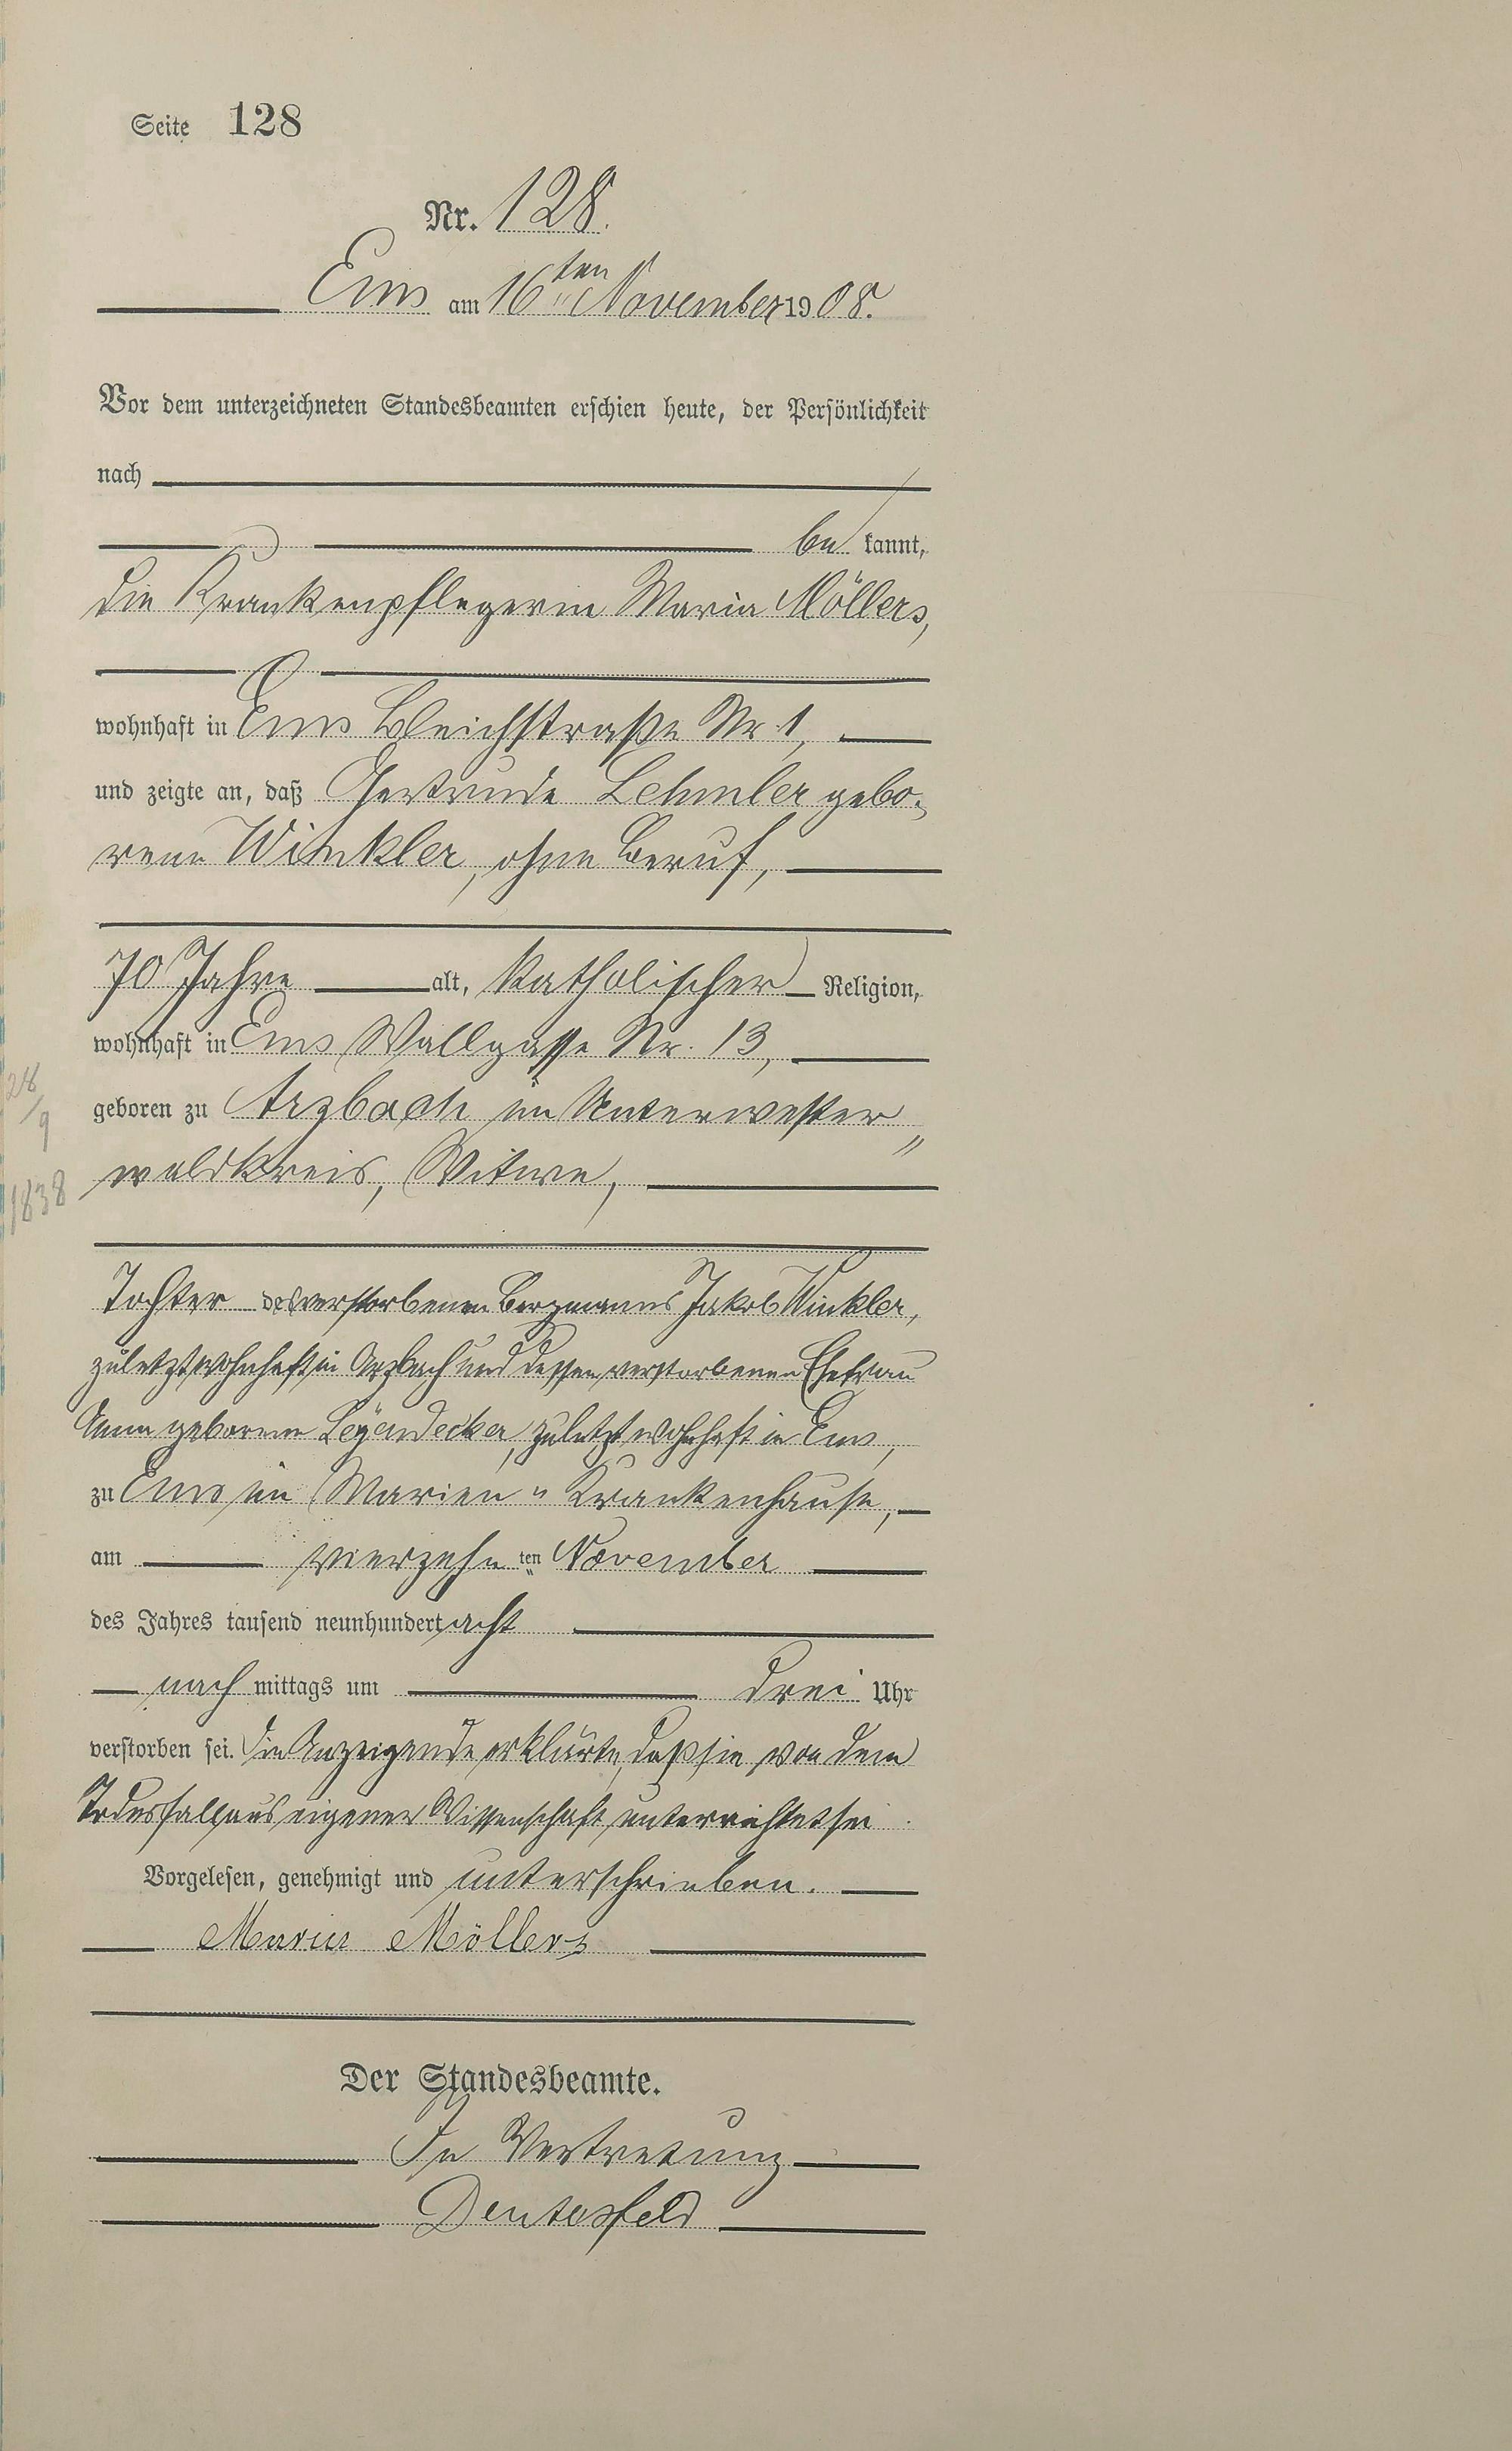 Seite 128
Nr. 128.
Ems am 16ten November 1908.
Vor dem unterzeichneten Standesbeamten erschien heute, der Persönlichkeit
nach
be kannt,
die Krankenpflegerin Maria Möllers,
wohnhaft in Ems Bleichstraße Nr. 1,
und zeigte an, daß Gertrude Lehmler gebo-
rene Winkler, ohne Beruf,
70 Jahre alt, katholischer Religion,
wohnhaft in Ems Wallgasse Nr. 13,
28/9
geboren zu Arzbach im Unterwester„
1838
waldkreis, Witwe,
Tochter des verstorbenen Bergmanns Jakob Winkler,
zuletzt wohnhaft in Arzbach und dessen verstorbenen Ehefrau
Anna geborene Leyendecker, zuletzt wohnhaft in Ems,
zu Ems im Marien„Krankenhause,
am vierzehnten November
des Jahres tausend neunhundert acht
nach mittags um drei Uhr
verstorben sei. Die Anzeigende erklärte, daß sie von dem
Todesfall aus eigener Wissenschaft unterrichtet sei.
Vorgelesen, genehmigt und unterschrieben.
Maria Möllers
Der Standesbeamte.
In Vertretung